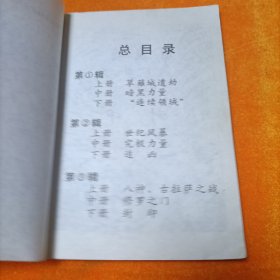 总目录
第①辑
上册 草薙城遗幼
中册 暗黑力量
下册 “连续领域”
第②辑
上册 世纪风暴
中册 究极力量
下册
第③辑
上册 八神、古拉萨之战
中册 修罗之门
下册